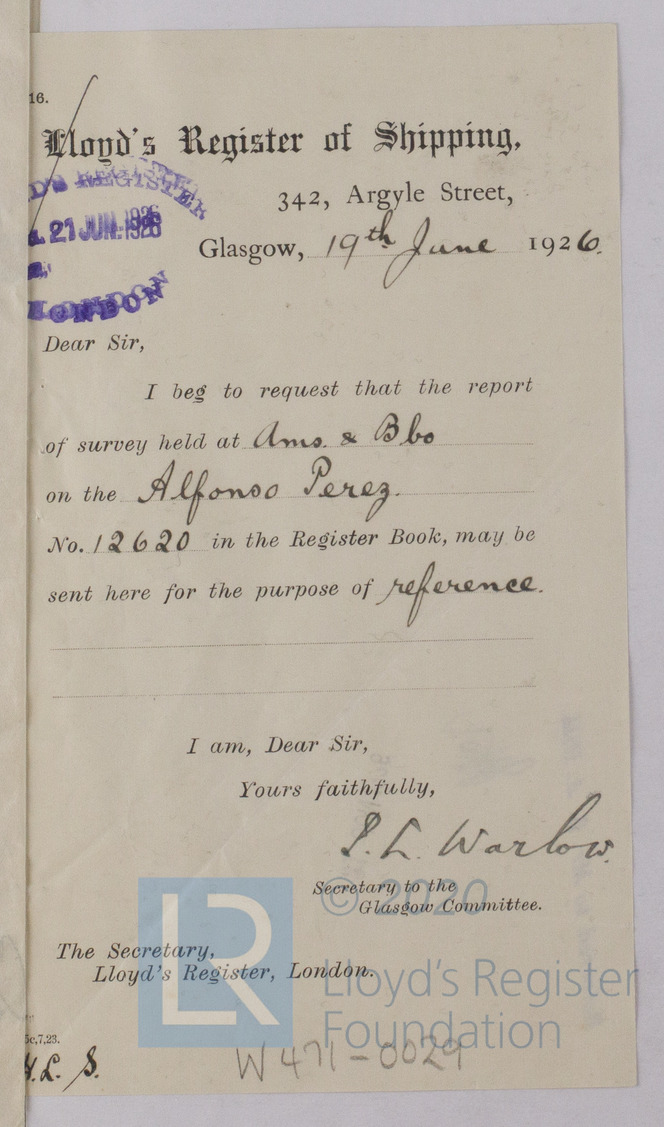 16.
Lloyd's Register of Shipping,
342, Argyle Street,
LLOYD'S REGISTER
21 JUN. 1926
LONDON
Glasgow, 19th June 1926.
Dear Sir,
I beg to request that the report
of survey held at Ams. & Bbo
on the Alfonso Perez.
No. 12620 in the Register Book, may be
sent here for the purpose of reference.
I am, Dear Sir,
Yours faithfully,
Warlow.
Secretary to the
Glasgow Committee.
© 2020
The Secretary,
Lloyd's Register, London.
LR
Lloyd's Register
Foundation
5c,7,23.
W471-0029